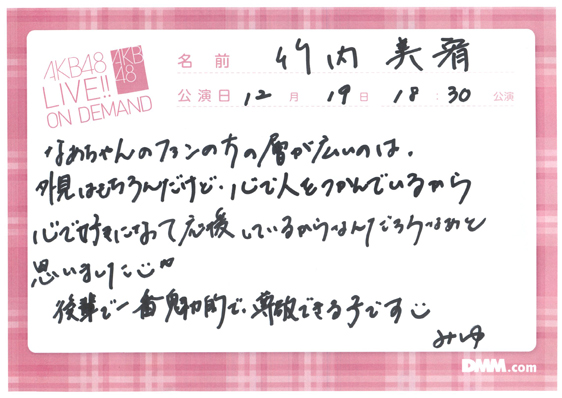 AKB48
LIVE!!
ON DEMAND
AKB
48
名前 竹内美宥
公演日 12月 19日 18:30 公演
なぁちゃんのファンの方の層が広いのは、
外見はもちろんだけど、心で人をつかんでいるから
心で好きになって応援しているからなんだろうなぁと
思いました
後輩で一番魅力的で、尊敬できる子です
みゆ
DMM.com